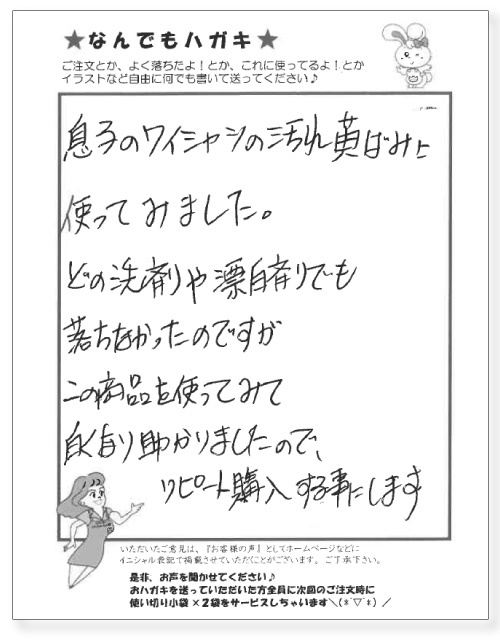 ★なんでもハガキ★
ご注文とか、よく落ちたよ！とか、これに使ってるよ！とか
イラストなど自由に何でも書いて送ってください♪
息子のワイシャツの汚れ黄ばみに
使ってみました。
どの洗剤や漂白剤でも
落ちなかったのですが
この商品を使ってみて
白くなり助かりましたので、
リピート購入する事にします
いただいたご意見は、『お客様の声』としてホームページなどに
イニシャル表記で掲載させていただくことがございます。ご了承下さい。
是非、お声を聞かせてください♪
おハガキを送っていただいた方全員に次回のご注文時に
使い切り小袋×２袋をサービスしちゃいます＼(*´▽`*)／